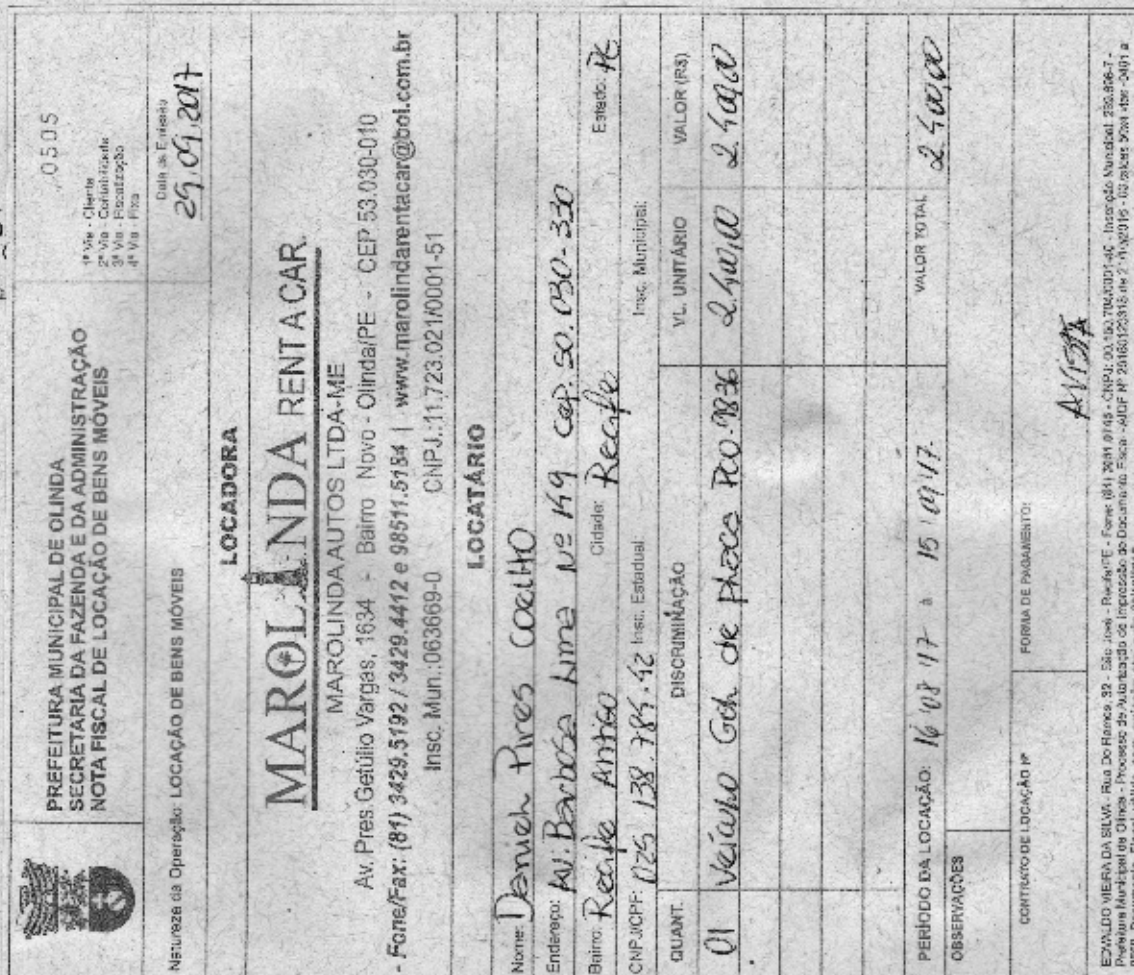 PREFEITURA MUNICIPAL DE OLINDA
SECRETARIA DA FAZENDA E DA ADMINISTRAÇÃO
NOTA FISCAL DE LOCAÇÃO DE BENS MÓVEIS
0505
1ª Via - Cliente
2ª Via - Contabilidade
3ª Via - Fiscalização
4ª Via - Fixa
Natureza da Operação: LOCAÇÃO DE BENS MÓVEIS
Data da Emissão
29.09.2017
LOCADORA
MAROLINDA RENT A CAR
MAROLINDA AUTOS LTDA-ME
Av. Pres. Getúlio Vargas, 1634 - Bairro Novo - Olinda/PE - CEP 53.030-010
- Fone/Fax: (81) 3429.5192 / 3429.4412 e 98511.5184 | www.marolindarentacar@bol.com.br
Insc. Mun.:063669-0 CNPJ.:11.723.021/0001-51
LOCATÁRIO
Nome: Daniel Pires Coelho
Endereço: Av. Barbosa Lima Nº 149 Cep. 50.030-330
Bairro: Recife Antigo Cidade: Recife Estado: PE
CNPJ/CPF: 025 138.784-42 Insc. Estadual: Insc. Municipal:
QUANT. DISCRIMINAÇÃO VL. UNITÁRIO VALOR (R$)
01 Veículo Gol de placa PCO-9836 2.400,00 2.400,00
PERÍODO DA LOCAÇÃO: 16 08 17 a 15 09 17 VALOR TOTAL 2.400,00
OBSERVAÇÕES
CONTRATO DE LOCAÇÃO Nº FORMA DE PAGAMENTO:
AVISTA
EDVALDO VIEIRA DA SILVA - Rua Do Ramos, 32 - São José - Recife/PE - Fone: (81)
Prefeitura Municipal de Olinda - Processo de Autorização de Impressão do Documento Fiscal - AIDF Nº